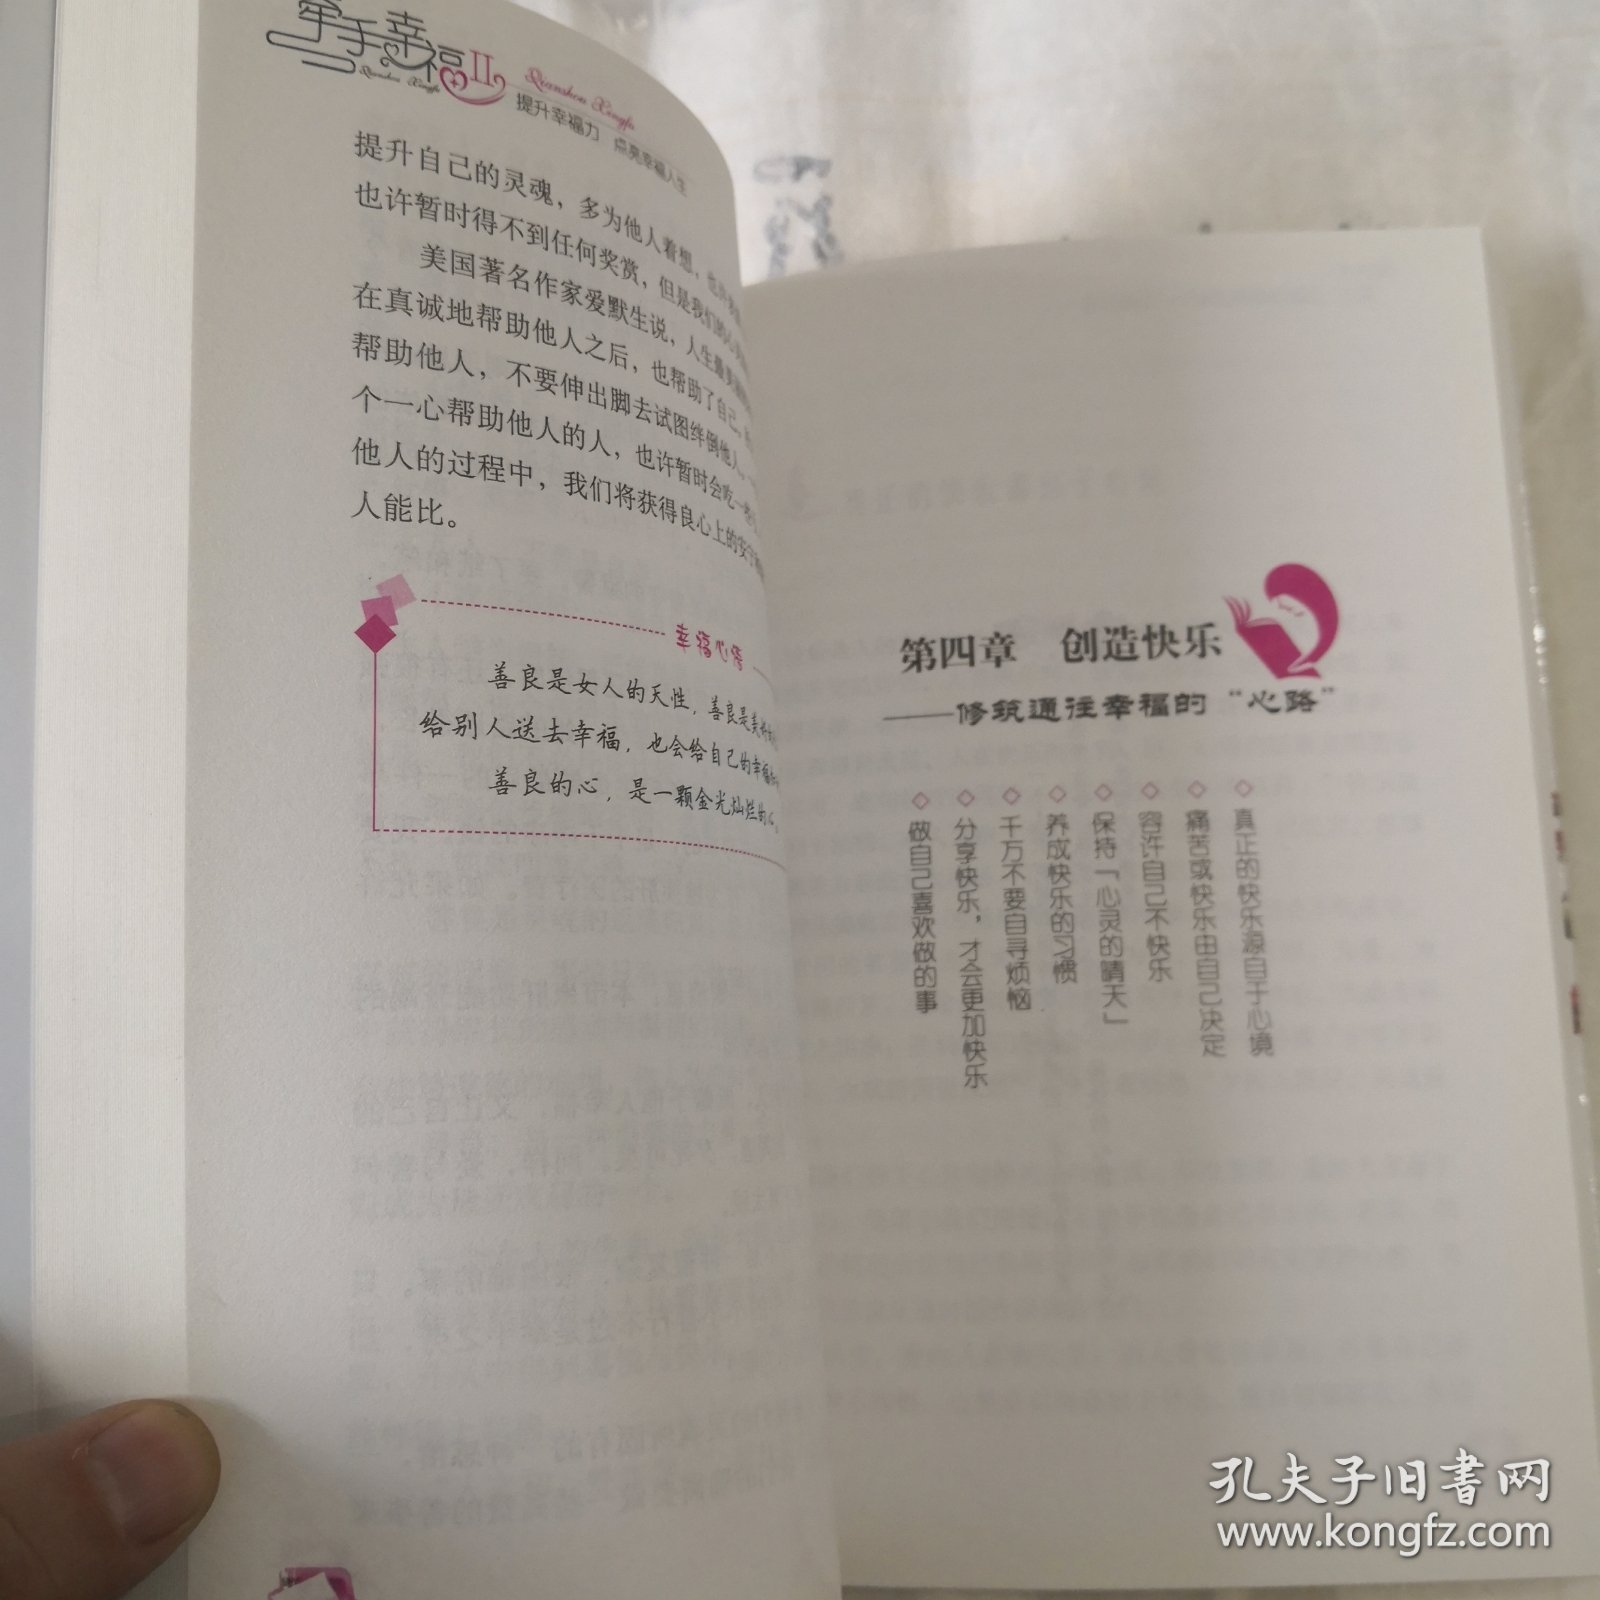 牵手幸福II
Qianshou Xingfu
Qianshou Xingfu
提升幸福力 点亮幸福人生
提升自己的灵魂，多为他人着想，也许
也许暂时得不到任何奖赏，但是我们的心
美国著名作家爱默生说，人生最美
在真诚地帮助他人之后，也帮助了自己。
帮助他人，不要伸出脚去试图绊倒他人。
个一心帮助他人的人，也许暂时会吃一些
他人的过程中，我们将获得良心上的安宁
人能比。
幸福心语
善良是女人的天性，善良是美
给别人送去幸福，也会给自己的幸福
善良的心，是一颗金光灿烂的心。
第四章 创造快乐
——修筑通往幸福的“心路”
◇真正的快乐源自于心境
◇痛苦或快乐由自己决定
◇容许自己不快乐
◇保持「心灵的晴天」
◇养成快乐的习惯
◇千万不要自寻烦恼
◇分享快乐，才会更加快乐
◇做自己喜欢做的事
孔夫子旧书网
www.kongfz.com